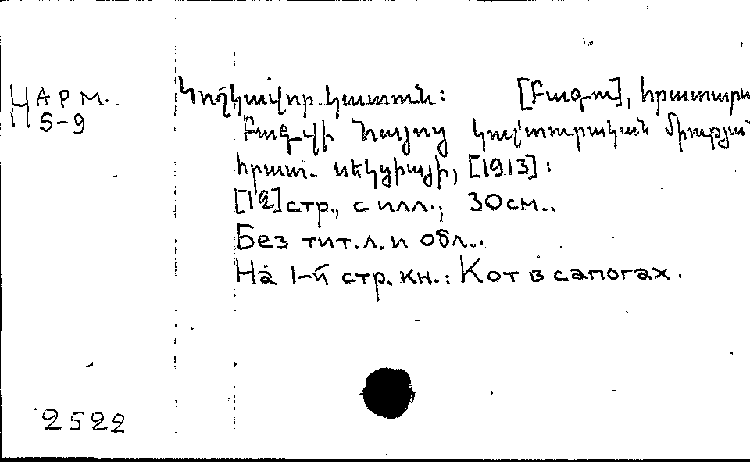 Կոշկավոր կատուն: [Բագու], հրատարա
НАРМ. 5-9
Բագ-վի հայոց կուլտուրական միության
հրատ. սեկցիայի, [1913]:
[12] стр., с илл., 30 см..
Без тит. л. и обл..
На 1-й стр. кн.: Кот в сапогах.
2522